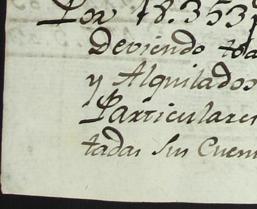 Por 18.353
Deviendo
y Alquilados
Particulares
tadas Sus Cuen